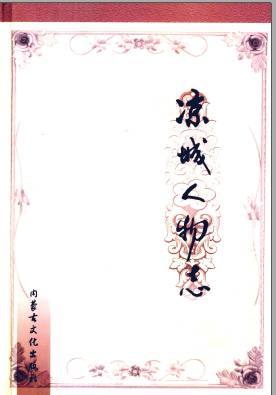 凉城人物志
内蒙古文化出版社